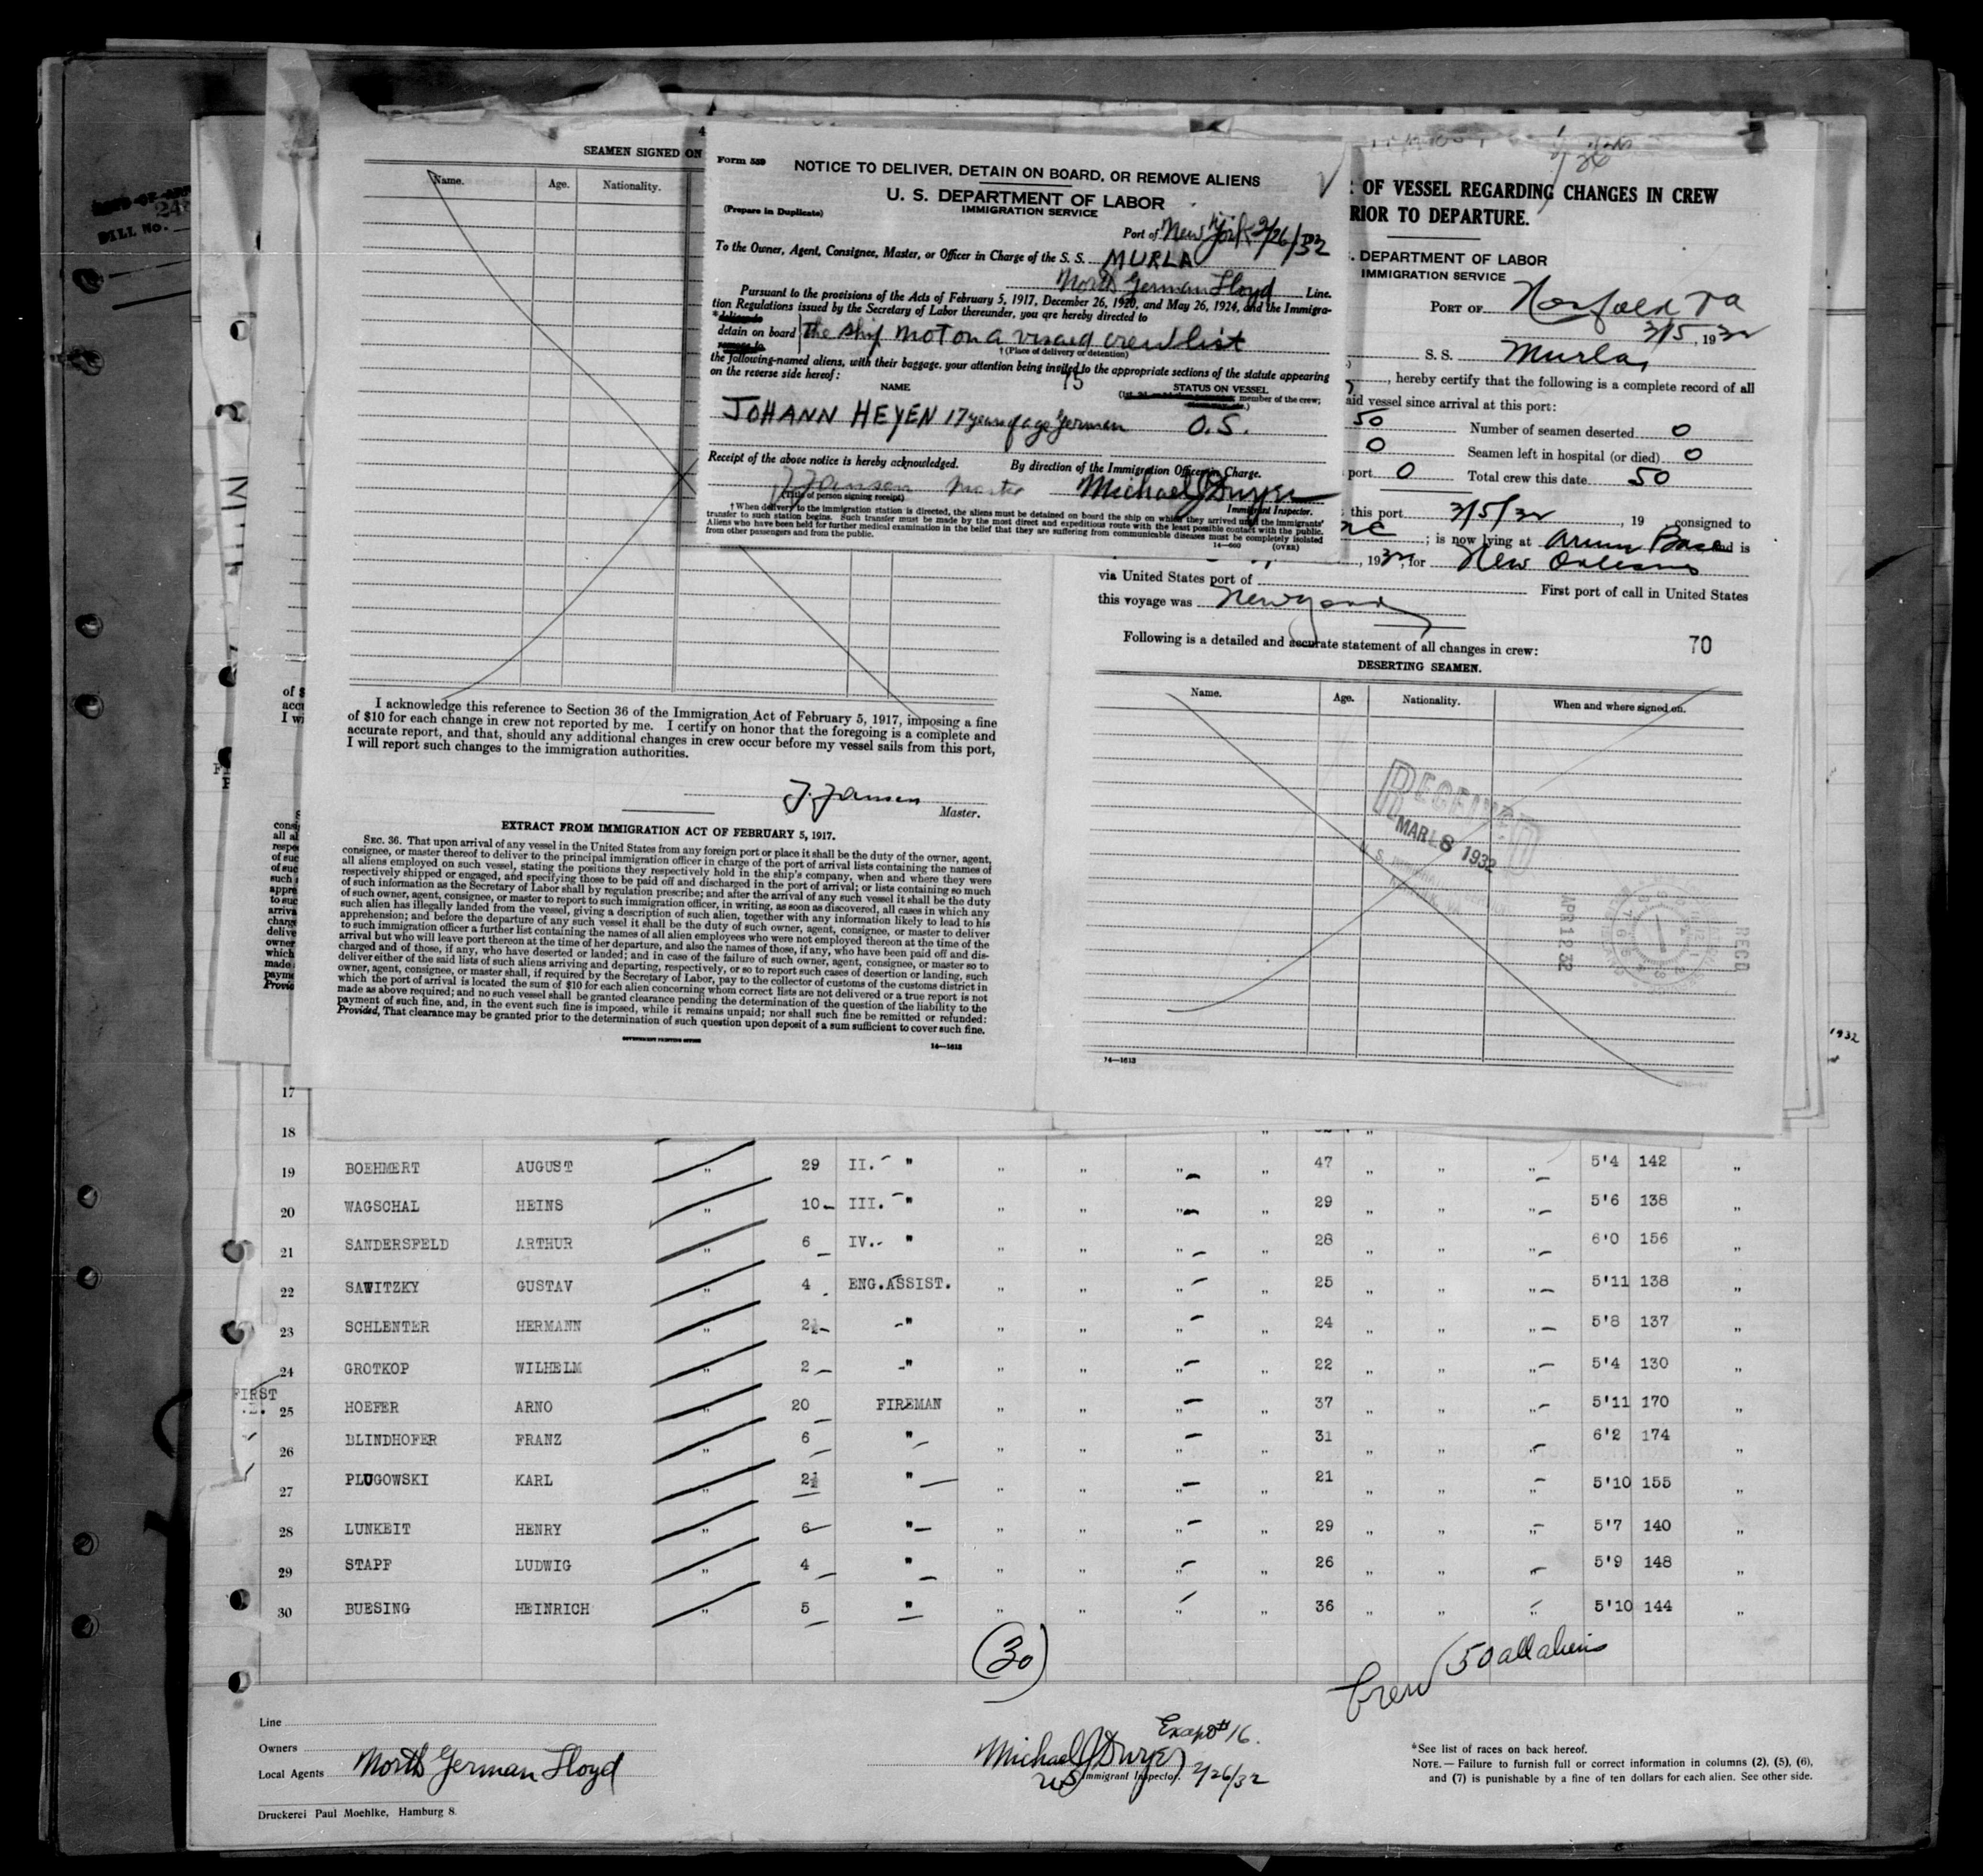 SEAMEN SIGNED ON
Name. Age. Nationality.
I acknowledge this reference to Section 36 of the Immigration Act of February 5, 1917, imposing a fine
of $10 for each change in crew not reported by me. I certify on honor that the foregoing is a complete and
accurate report, and that, should any additional changes in crew occur before my vessel sails from this port,
I will report such changes to the immigration authorities.
J. Jansen
Master.
EXTRACT FROM IMMIGRATION ACT OF FEBRUARY 5, 1917.
SEC. 36. That upon arrival of any vessel in the United States from any foreign port or place it shall be the duty of the owner, agent,
consignee, or master thereof to deliver to the principal immigration officer in charge of the port of arrival lists containing the names of
all aliens employed on such vessel, stating the positions they respectively hold in the ship's company, when and where they were
respectively shipped or engaged, and specifying those to be paid off and discharged in the port of arrival; or lists containing so much
of such information as the Secretary of Labor shall by regulation prescribe; and after the arrival of any such vessel it shall be the duty
of such owner, agent, consignee, or master to report to such immigration officer, in writing, as soon as discovered, all cases in which any
such alien has illegally landed from the vessel, giving a description of such alien, together with any information likely to lead to his
apprehension; and before the departure of any such vessel it shall be the duty of such owner, agent, consignee, or master to deliver
to such immigration officer a further list containing the names of all alien employees who were not employed thereon at the time of the
arrival but who will leave port thereon at the time of her departure, and also the names of those, if any, who have been paid off and dis-
charged and of those, if any, who have deserted or landed; and in case of the failure of such owner, agent, consignee, or master so to
deliver either of the said lists of such aliens arriving and departing, respectively, or so to report such cases of desertion or landing, such
owner, agent, consignee, or master shall, if required by the Secretary of Labor, pay to the collector of customs of the customs district in
which the port of arrival is located the sum of $10 for each alien concerning whom correct lists are not delivered or a true report is not
made as above required; and no such vessel shall be granted clearance pending the determination of the question of the liability to the
payment of such fine, and, in the event such fine is imposed, while it remains unpaid; nor shall such fine be remitted or refunded:
Provided, That clearance may be granted prior to the determination of such question upon deposit of a sum sufficient to cover such fine.
GOVERNMENT PRINTING OFFICE 14—1613
Form 559
NOTICE TO DELIVER, DETAIN ON BOARD, OR REMOVE ALIENS
U. S. DEPARTMENT OF LABOR
(Prepare in Duplicate) IMMIGRATION SERVICE
Port of New York 2/26/32
To the Owner, Agent, Consignee, Master, or Officer in Charge of the S. S. MURLA
North German Lloyd Line.
Pursuant to the provisions of the Acts of February 5, 1917, December 26, 1920, and May 26, 1924, and the Immigra-
tion Regulations issued by the Secretary of Labor thereunder, you are hereby directed to
detain on board the ship not on a visaed crew list
†(Place of delivery or detention)
the following-named aliens, with their baggage, your attention being invited to the appropriate sections of the statute appearing
on the reverse side hereof:
NAME STATUS ON VESSEL
member of the crew;
JOHANN HEYEN 17 years of age German O.S.
Receipt of the above notice is hereby acknowledged. By direction of the Immigration Officer in Charge.
J Jansen Master Michael J Dwyer
(Title of person signing receipt) Immigrant Inspector.
†When delivery to the immigration station is directed, the aliens must be detained on board the ship on which they arrived until the immigrants'
transfer to such station begins. Such transfer must be made by the most direct and expeditious route with the least possible contact with the public.
Aliens who have been held for further medical examination in the belief that they are suffering from communicable diseases must be completely isolated
from other passengers and from the public.
14—600 (OVER)
OF VESSEL REGARDING CHANGES IN CREW
RIOR TO DEPARTURE.
. DEPARTMENT OF LABOR
IMMIGRATION SERVICE
PORT OF Norfolk Va
3/5, 1932
S. S. Murla,
, hereby certify that the following is a complete record of all
aid vessel since arrival at this port:
50 Number of seamen deserted 0
0 Seamen left in hospital (or died) 0
port 0 Total crew this date 50
this port 3/5/32, 19 , consigned to
; is now lying at Army Base and is
, 1932, for New Orleans
via United States port of
First port of call in United States
this voyage was New york
Following is a detailed and accurate statement of all changes in crew: 70
DESERTING SEAMEN.
Name. Age. Nationality. When and where signed on.
RECEIVED
MAR 8 1932
APR 12 32
RECD
14—1613
1932
17
18
19 BOEHMERT AUGUST " 29 II. " " " " " 47 " " " 5'4 142 "
20 WAGSCHAL HEINS " 10 III. " " " " " 29 " " " 5'6 138 "
21 SANDERSFELD ARTHUR " 6 IV. " " " " " 28 " " " 6'0 156 "
22 SAWITZKY GUSTAV " 4 ENG.ASSIST. " " " " 25 " " " 5'11 138 "
23 SCHLENTER HERMANN " 2½ " " " " " 24 " " " 5'8 137 "
24 GROTKOP WILHELM " 2 " " " " " 22 " " " 5'4 130 "
FIRST
25 HOEFER ARNO " 20 FIREMAN " " " " 37 " " " 5'11 170 "
26 BLINDHOFER FRANZ " 6 " " " " " 31 " " " 6'2 174 "
27 PLUGOWSKI KARL " 2½ " " " " " 21 " " " 5'10 155 "
28 LUNKEIT HENRY " 6 " " " " " 29 " " " 5'7 140 "
29 STAPF LUDWIG " 4 " " " " " 26 " " " 5'9 148 "
30 BUESING HEINRICH " 5 " " " " " 36 " " " 5'10 144 "
(30)
Crew 50 all aliens
Line
Owners
Local Agents North German Lloyd
Druckerei Paul Moehlke, Hamburg 8.
Michael J Dwyer
US Immigrant Inspector. 2/26/32
*See list of races on back hereof.
NOTE.—Failure to furnish full or correct information in columns (2), (5), (6),
and (7) is punishable by a fine of ten dollars for each alien. See other side.